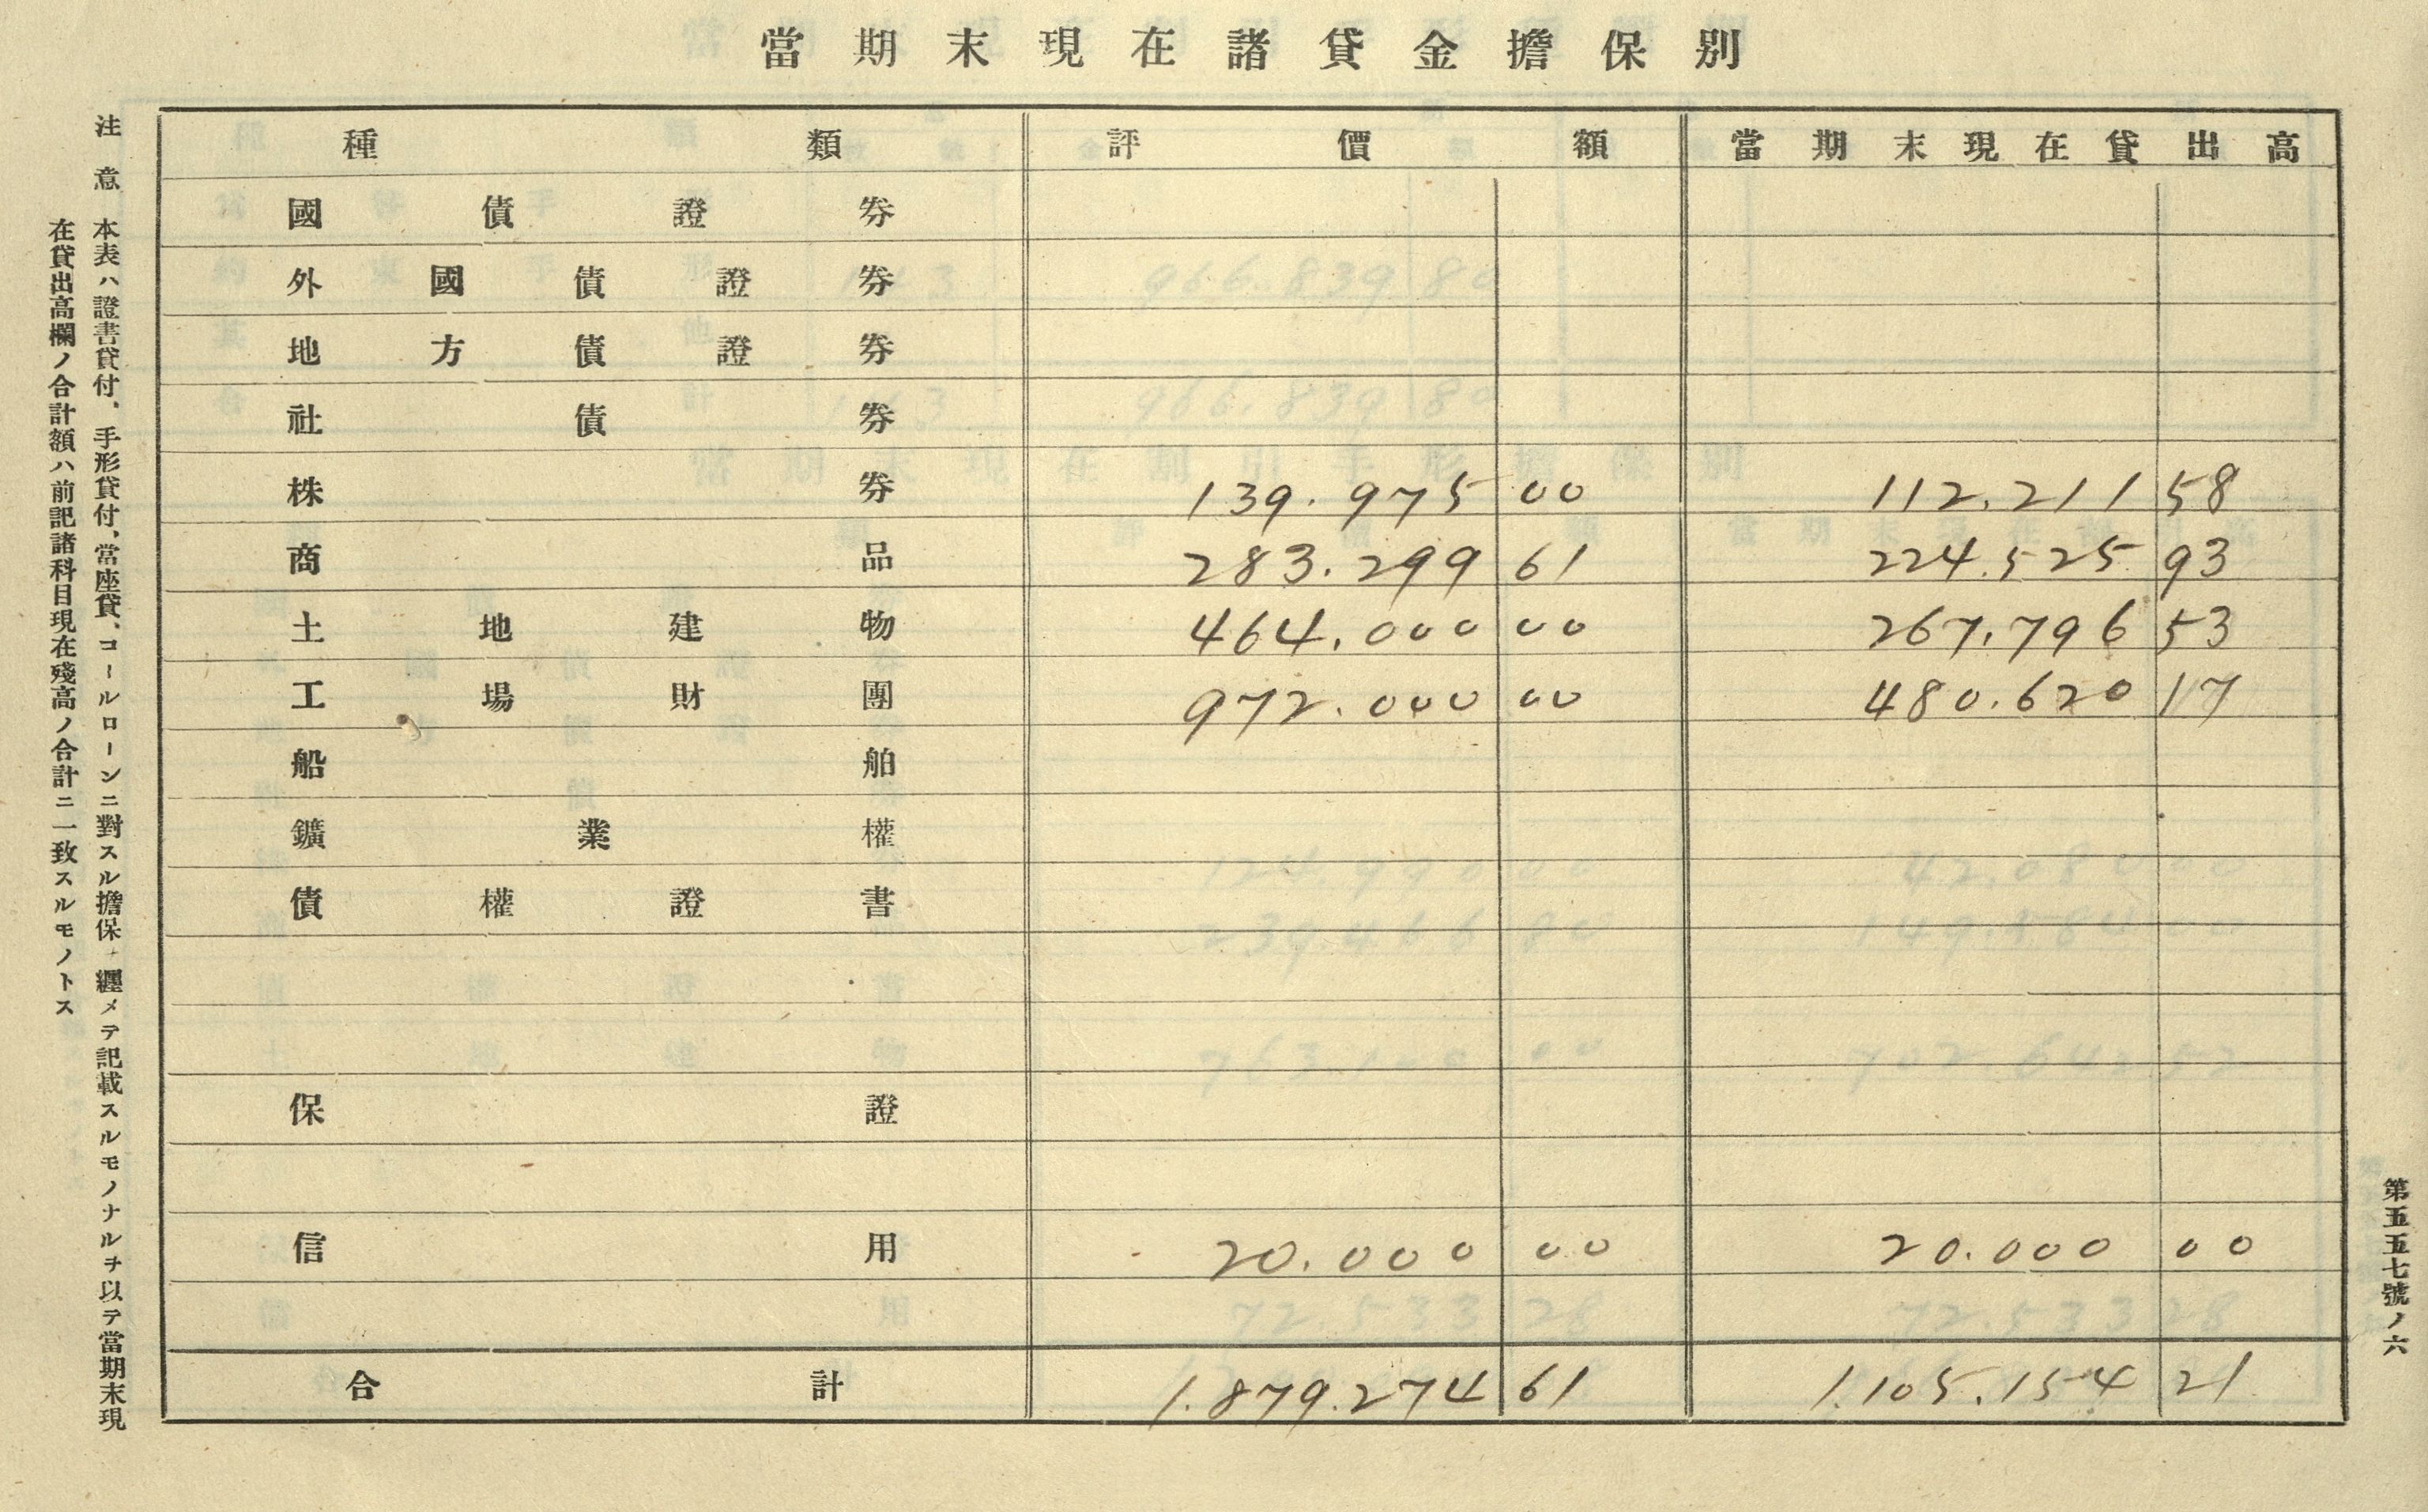 當期末現在諸貸金擔保別
種類 評價額 當期末現在貸出高
國債證券
外國債證券
地方債證券
社債券
株券 139.975 00 112.211 58
商品 283.299 61 224.525 93
土地建物 464.000 00 267.796 53
工場財團 972.000 00 480.620 17
船舶
鑛業權
債權證書
保證
信用 20.000 00 20.000 00
合計 1.879.274 61 1.105.154 21
第五五七號ノ六
注意
本表ハ證書貸付、手形貸付、當座貸、コールローンニ對スル擔保 纒メテ記載スルモノナルヲ以テ當期末現
在貸出高欄ノ合計額ハ前記諸科目現在殘高ノ合計ニ一致スルモノトス